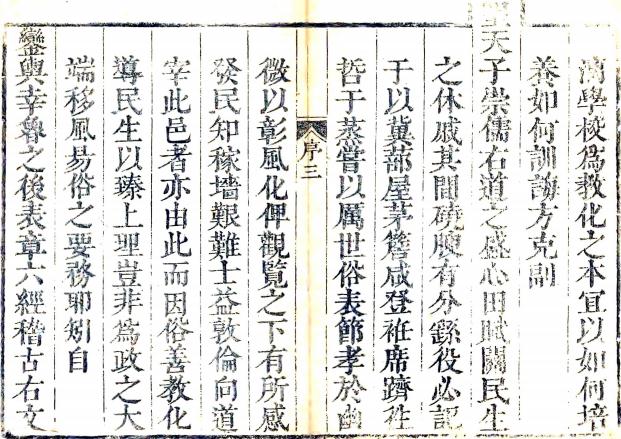 漓學校為教化之本宜以如何培
養如何訓誨方克副
聖天子崇儒右道之盛心田賦關民生
之休戚其間磽腴有分繇役必認
于以冀蔀屋茅簷咸登袵席躋牲
哲于蒸嘗以厲世俗表節孝於幽
序三
微以彰風化俾觀覽之下有所感
發民知稼墻艱難士益敦倫向道
宰此邑者亦由此而因俗善教化
導民生以臻上理豈非為政之大
端移風易俗之要務耶矧自
鑾輿幸魯之後表章六經稽古右文